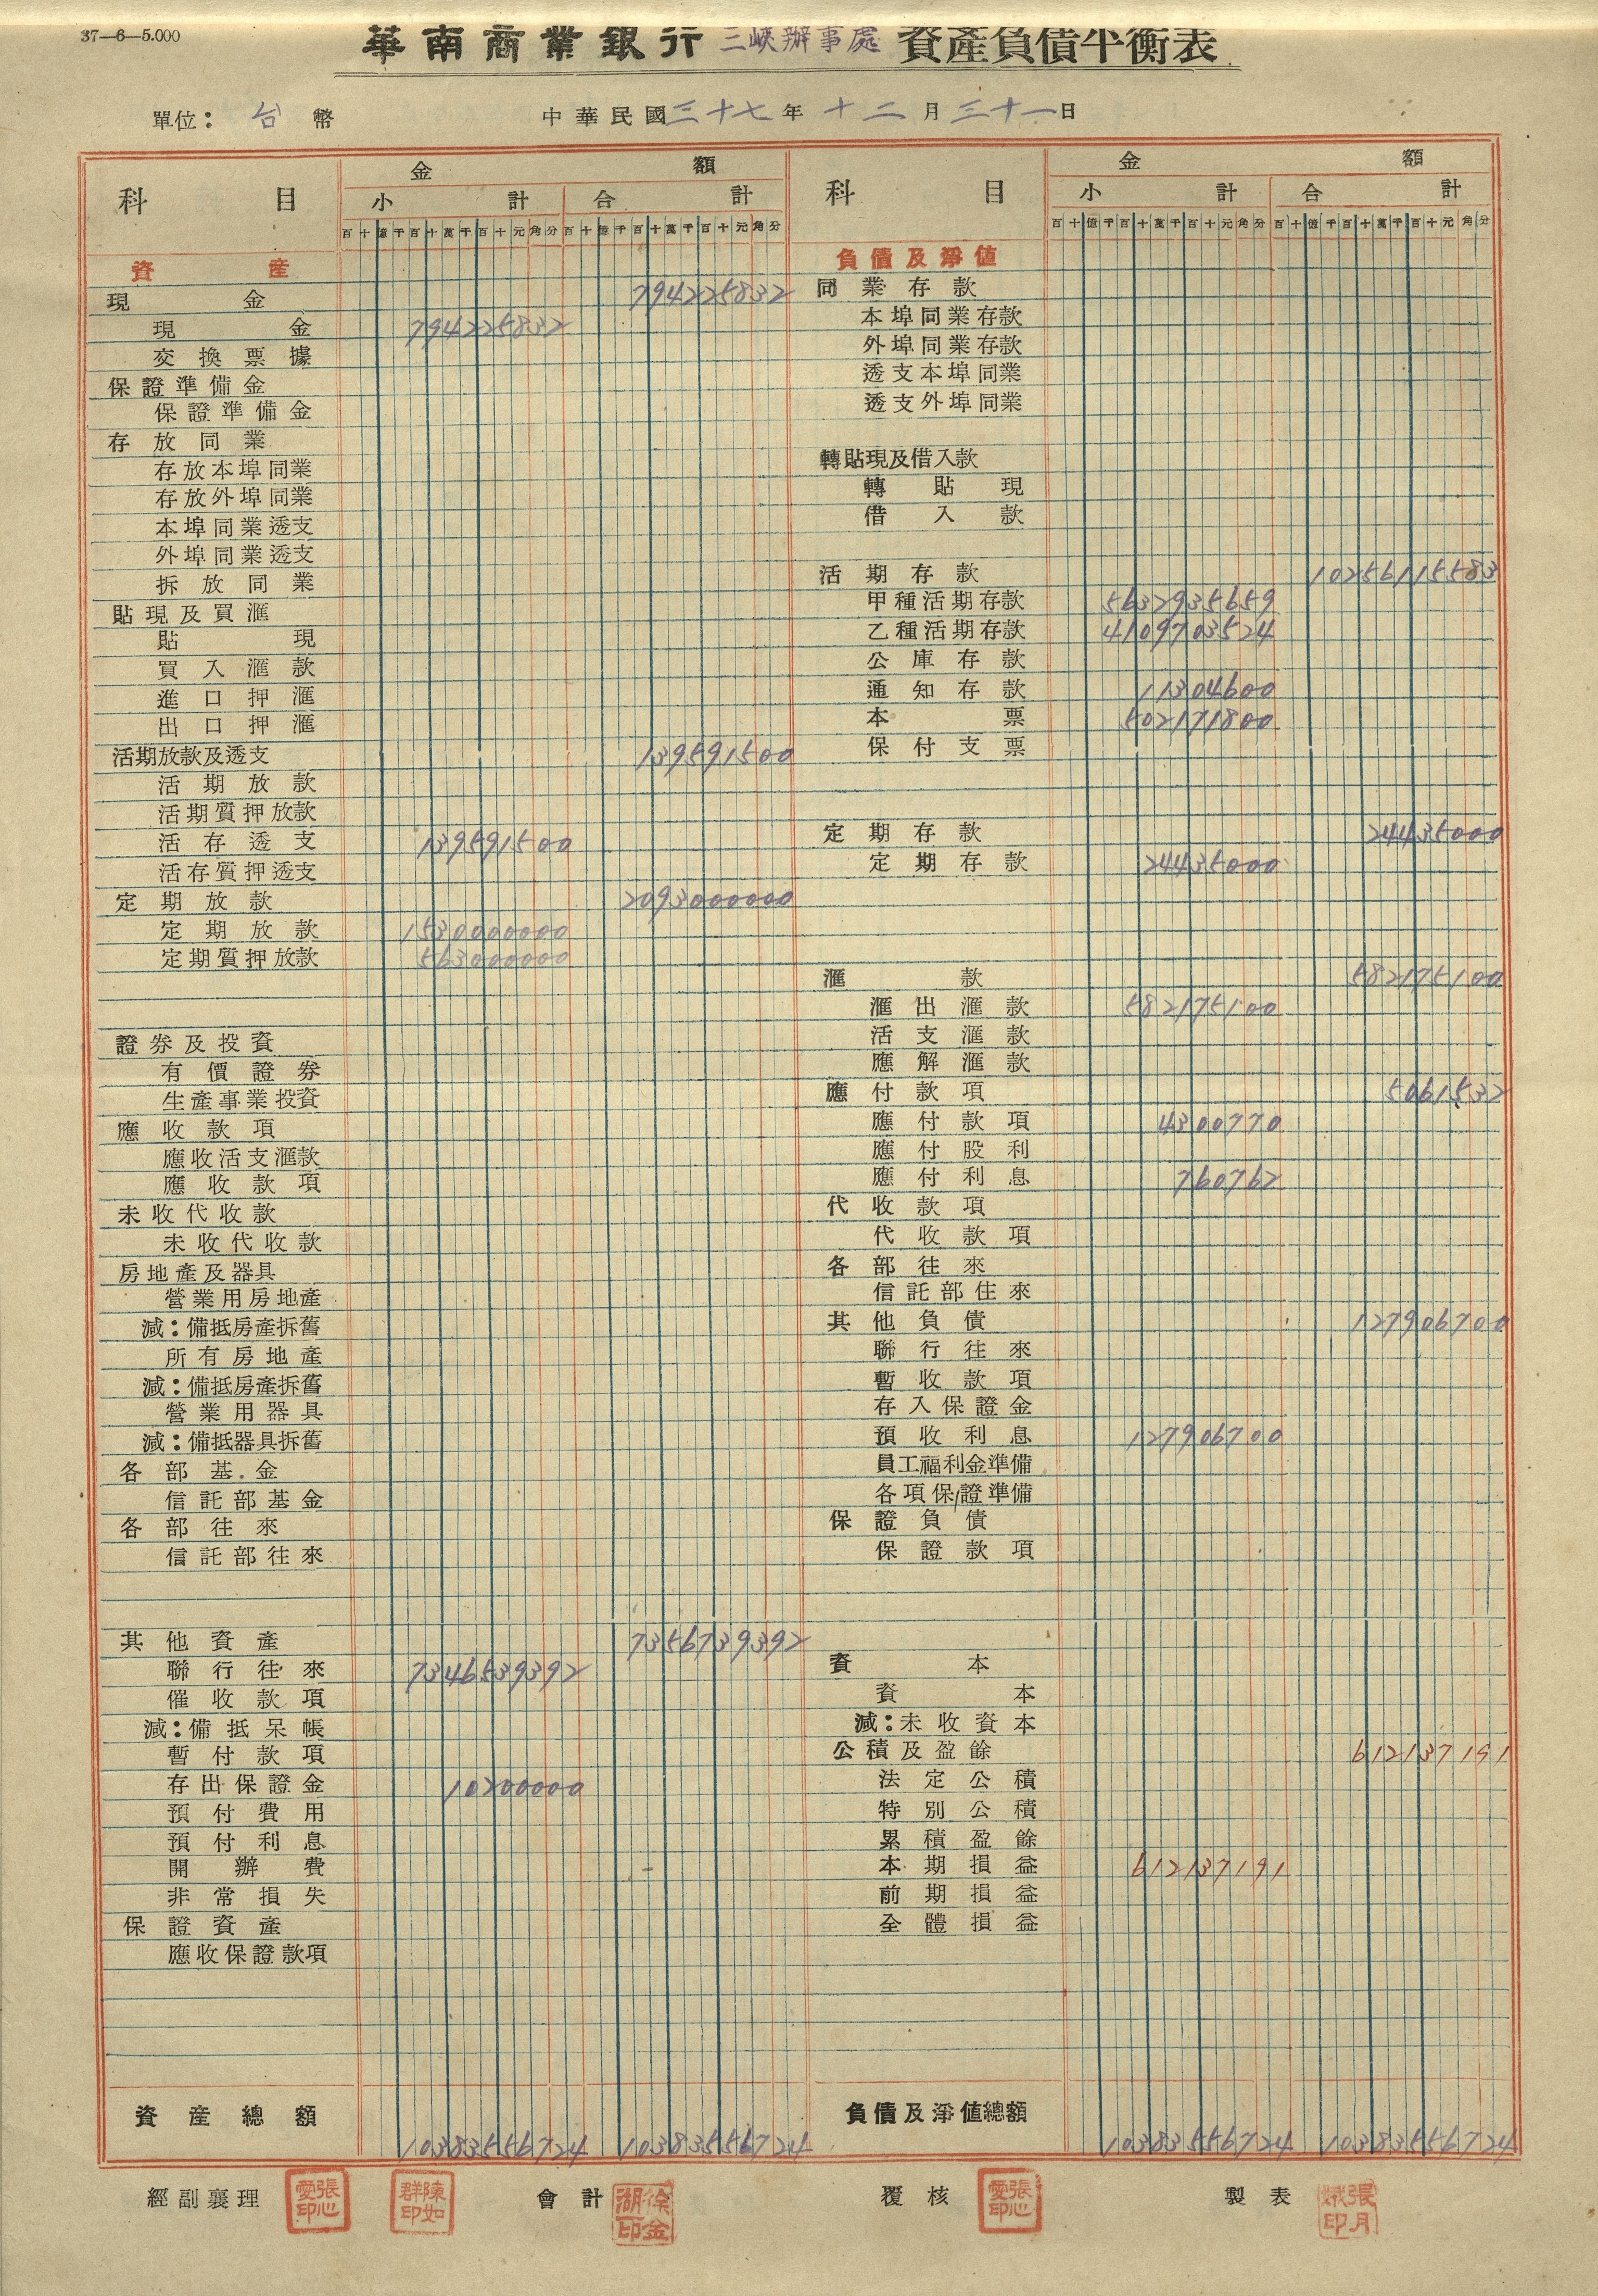 37—6—5.000
華南商業銀行 三峽辦事處 資產負債平衡表
單位：台幣 中華民國三十七年十二月三十一日
科目 金額
小計 合計
百十億千百十萬千百十元角分 百十億千百十萬千百十元角分
資產
現金 794225832
現金 794225832
交換票據
保證準備金
保證準備金
存放同業
存放本埠同業
存放外埠同業
本埠同業透支
外埠同業透支
拆放同業
貼現及買滙
貼現
買入滙款
進口押滙
出口押滙
活期放款及透支 139591500
活期放款
活期質押放款
活存透支 139591500
活存質押透支
定期放款 2093000000
定期放款 1530000000
定期質押放款 563000000
證券及投資
有價證券
生產事業投資
應收款項
應收活支滙款
應收款項
未收代收款
未收代收款
房地產及器具
營業用房地產
減：備抵房產拆舊
所有房地產
減：備抵房產拆舊
營業用器具
減：備抵器具拆舊
各部基金
信託部基金
各部往來
信託部往來
其他資產 7356739392
聯行往來 7346539392
催收款項
減：備抵呆帳
暫付款項
存出保證金 10200000
預付費用
預付利息
開辦費
非常損失
保證資產
應收保證款項
資產總額 10383556724 10383556724
科目 金額
小計 合計
百十億千百十萬千百十元角分 百十億千百十萬千百十元角分
負債及淨值
同業存款
本埠同業存款
外埠同業存款
透支本埠同業
透支外埠同業
轉貼現及借入款
轉貼現
借入款
活期存款 10256115583
甲種活期存款 5632935659
乙種活期存款 4109703524
公庫存款
通知存款 11304600
本票 502171800
保付支票
定期存款 24435000
定期存款 24435000
滙款 582175100
滙出滙款 582175100
活支滙款
應解滙款
應付款項 5061532
應付款項 4300770
應付股利
應付利息 760762
代收款項
代收款項
各部往來
信託部往來
其他負債 127906700
聯行往來
暫收款項
存入保證金
預收利息 127906700
員工福利金準備
各項保證準備
保證負債
保證款項
資本
資本
減：未收資本
公積及盈餘 612137191
法定公積
特別公積
累積盈餘
本期損益 612137191
前期損益
全體損益
負債及淨值總額 10383556724 10383556724
經副襄理 張心愛印 陳如群印 會計 徐金湖印 覆核 張心愛印 製表 張月娥印